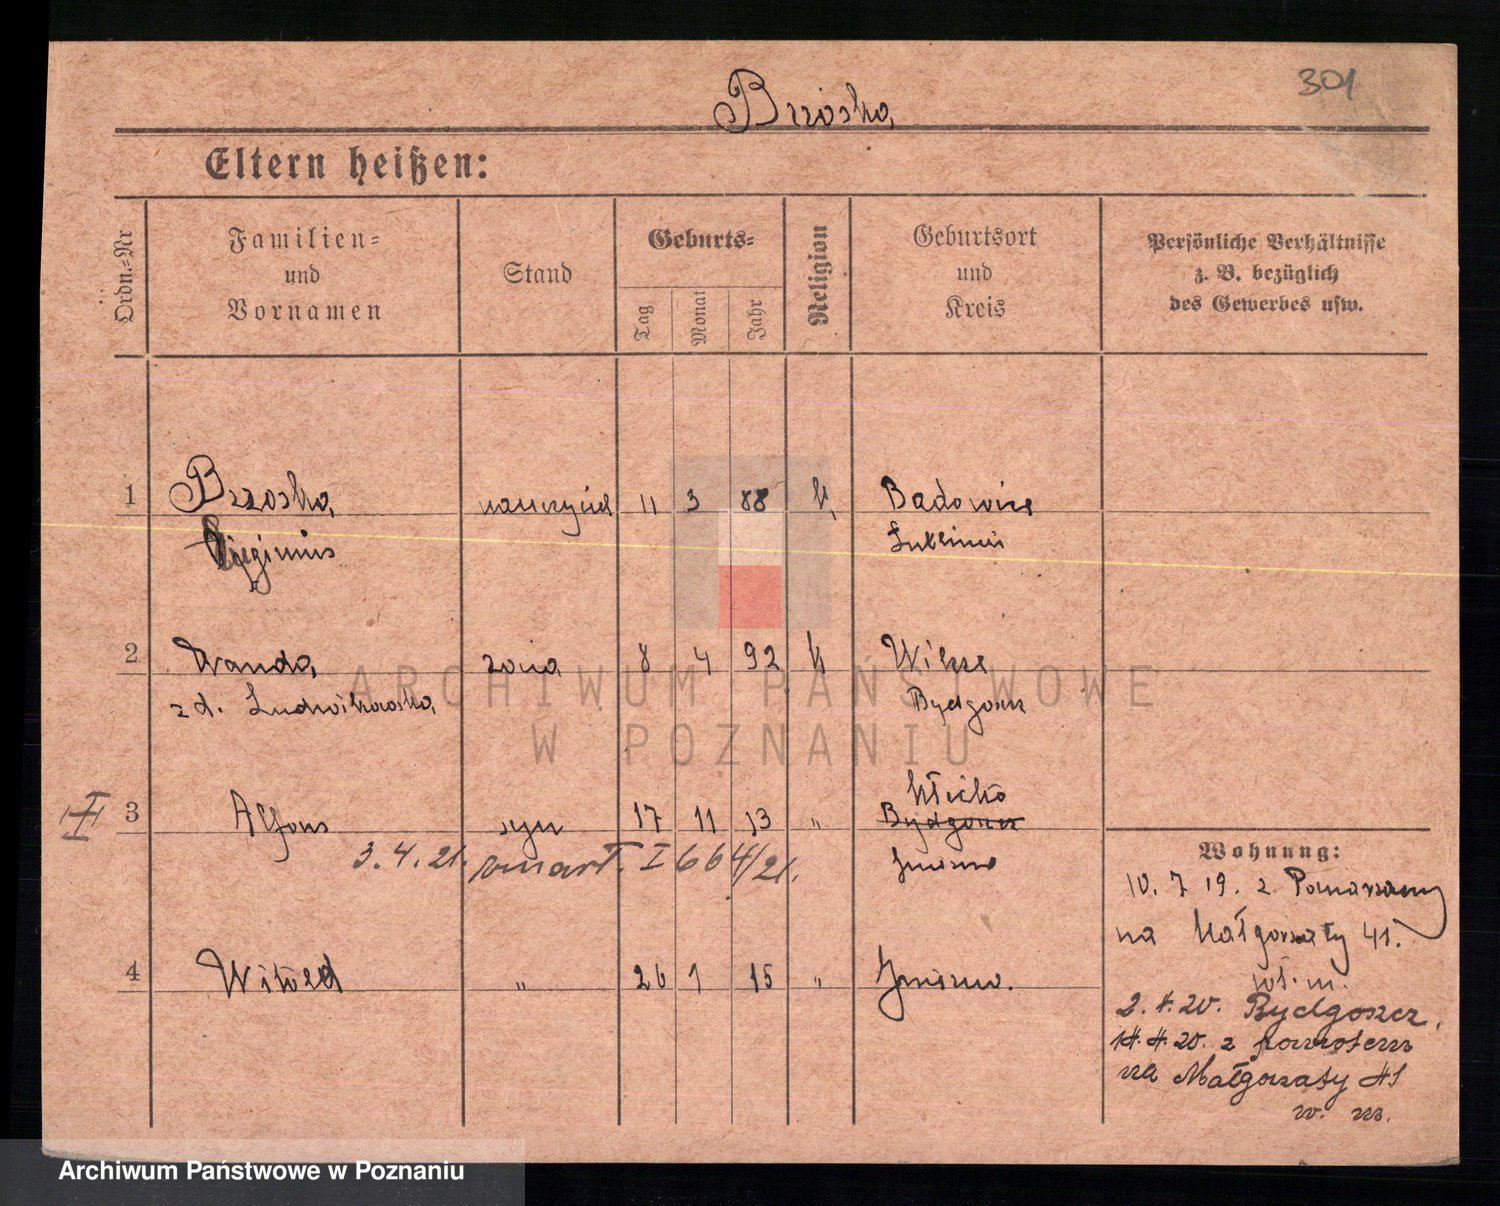 301
Brzoska
Eltern heißen:
Ordn.-Nr
Familien-
und
Vornamen
Stand
Geburts-
Tag
Monat
Jahr
Religion
Geburtsort
und
Kreis
Persönliche Verhältnisse
z. B. bezüglich
des Gewerbes usw.
1 Brzoska, nauczyciel 11 3 88 k,
2 Wanda, żona 8 4 92 k
z d. Ludwikowska, Bydgoszcz
Kłecko
3 Alfons syn 17 11 13 " Bydgoszcz
3. 4. 21. zmarł. I 664/21. Gniezno
4 Witold " 26 1 15 " Gniezno.
Wohnung:
10. 7 19. z Pomarzany
na Małgorzaty 41.
w. m.
2. 4. 20. Bydgoszcz.
14. 4. 20. z powrotem
na Małgorzaty 41
w. m.
ARCHIWUM PAŃSTWOWE
W POZNANIU
Archiwum Państwowe w Poznaniu